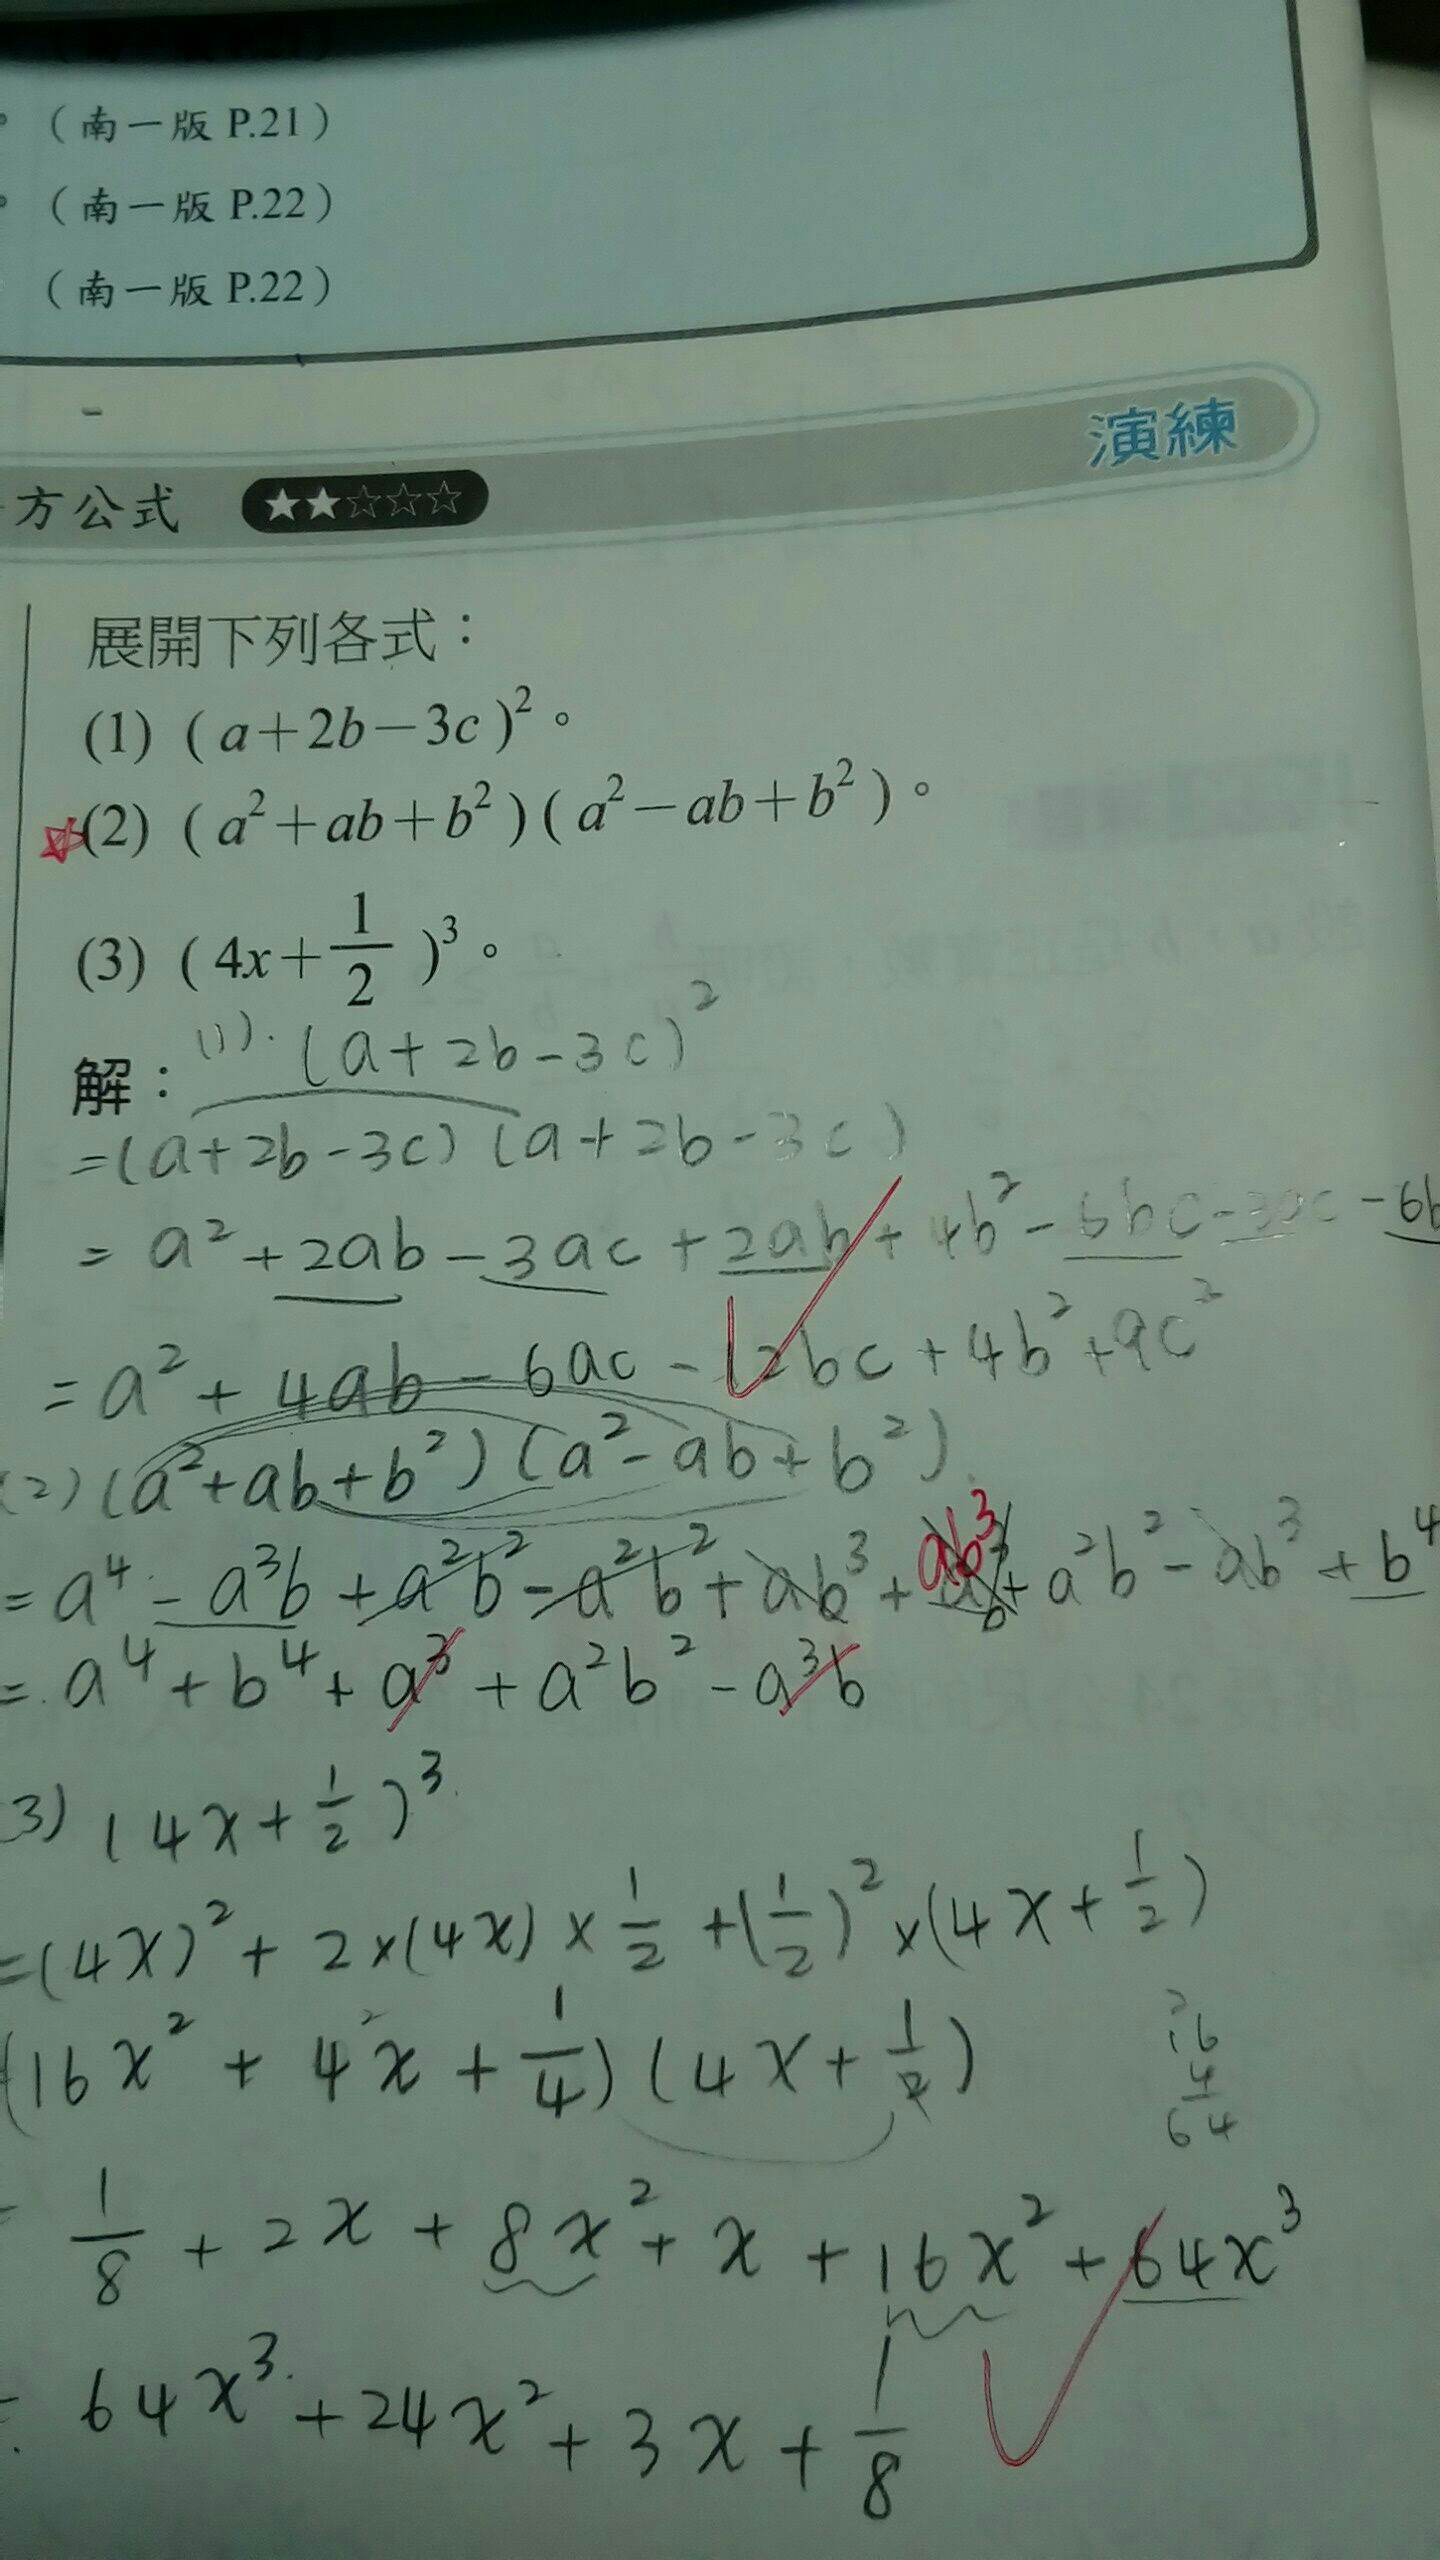 (南一版 P.21)
(南一版 P.22)
(南一版 P.22)
演練
方公式 ★★☆☆☆
展開下列各式：
(1) (a+2b-3c)²。
(2) (a²+ab+b²)(a²-ab+b²)。
(3) (4x+1/2)³。
解：(1). (a+2b-3c)²
=(a+2b-3c)(a+2b-3c)
= a²+2ab-3ac+2ab+4b²-6bc-3ac-6b
= a²+4ab-6ac-12bc+4b²+9c²
(2)(a²+ab+b²)(a²-ab+b²)
= a⁴-a³b+a²b²-a²b²+ab³+ab³+a²b²-ab³+b⁴
= a⁴+b⁴+a³+a²b²-a³b
3) (4x+1/2)³
=(4x)²+2×(4x)×1/2+(1/2)²×(4x+1/2)
(16x²+4x+1/4)(4x+1/2)
16
4
64
= 1/8+2x+8x²+x+16x²+64x³
= 64x³+24x²+3x+1/8